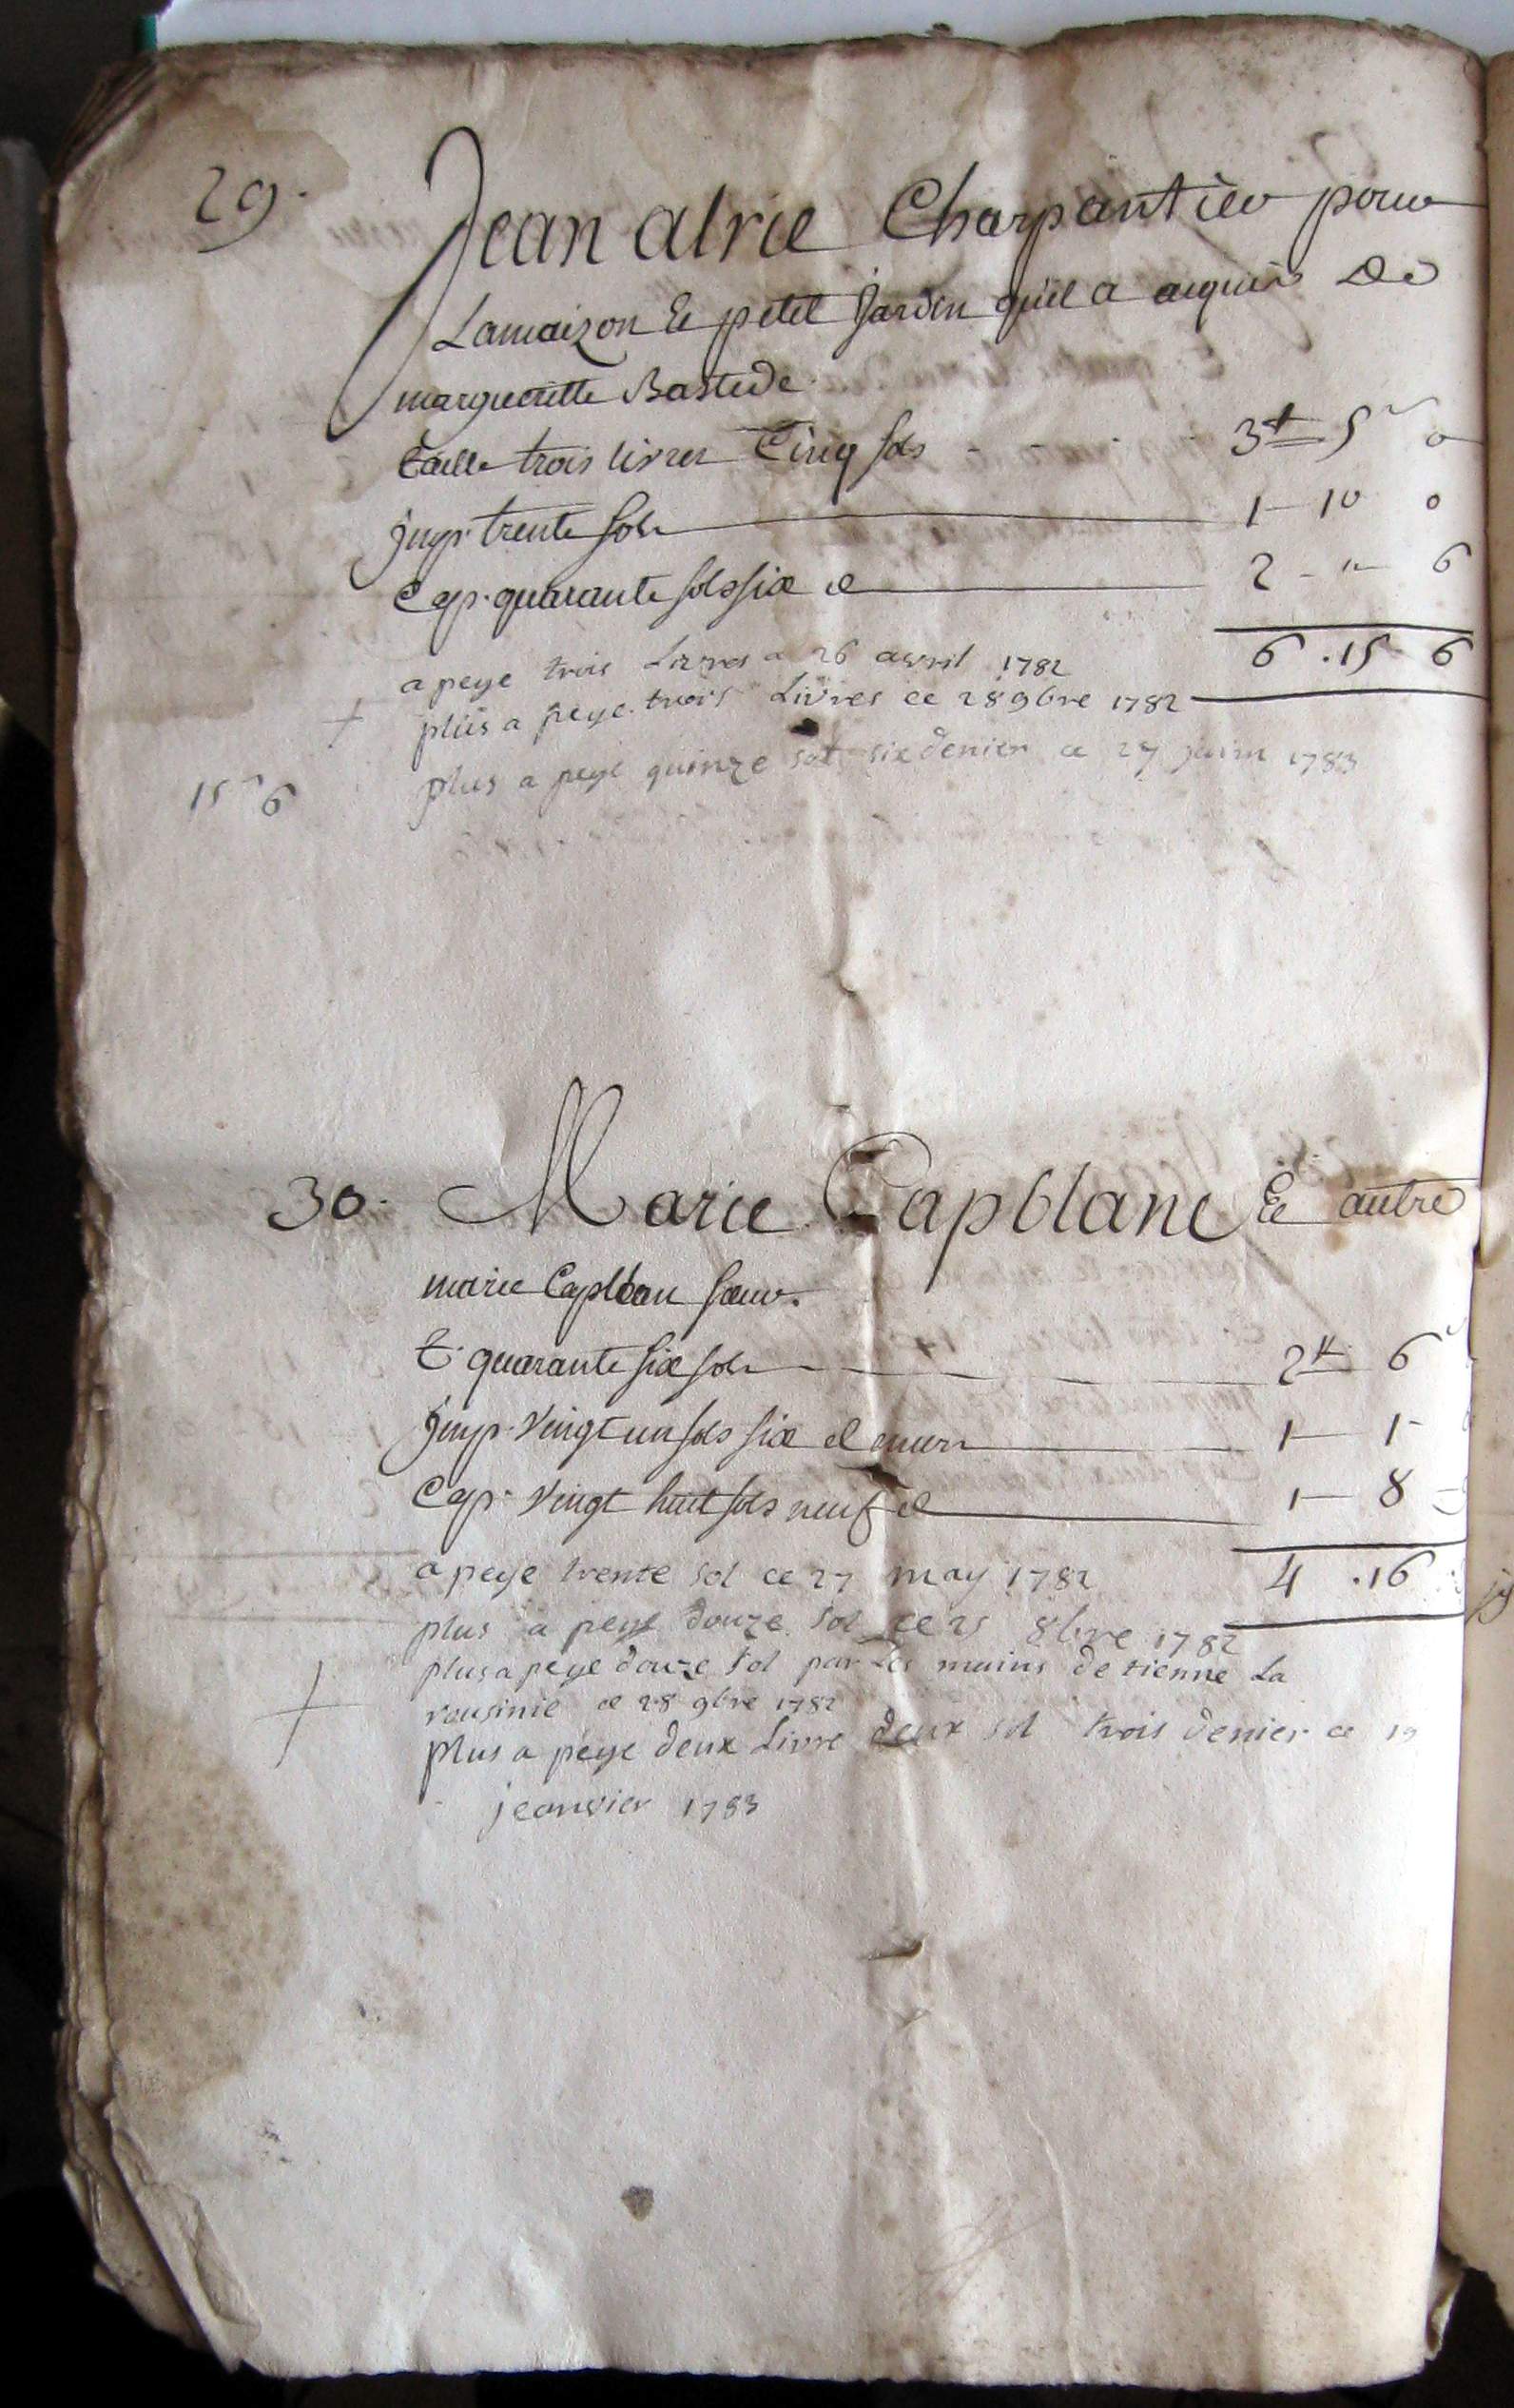 29. Jean alric Charpantier pour
Lamaizon & petit Jardin quil a aquis de
margueritte Bastide
taille trois livres Cinq sols - - - 3₶ 5 s 0
Jmp. trente sols 1 - 10 0
Cap. quarante sols six d 2 - " - 6
6 . 15 - 6
a peye trois Livres a 26 avril 1782
+ plus a peye trois Livres ce 28 9bre 1782
plus a peye quinze sol six denier ce 27 juin 1783
15 s 6
30. Marie Capblanc & autre
marie Capblan sœur.
t. quarante six sols 2₶ 6 s
Jmp. Vingt un sols six deniers 1 - 1 -
Cap. Vingt huit sols neuf d 1 - 8 -
4 . 16
a peye trente sol ce 27 may 1782
plus a peye douze sol ce 25 8bre 1782
plus a peye douze sol par Les mains de tienne La
+ rousinie ce 28 9bre 1782
plus a peye deux Livre deux sol trois denier ce
jeanvier 1783